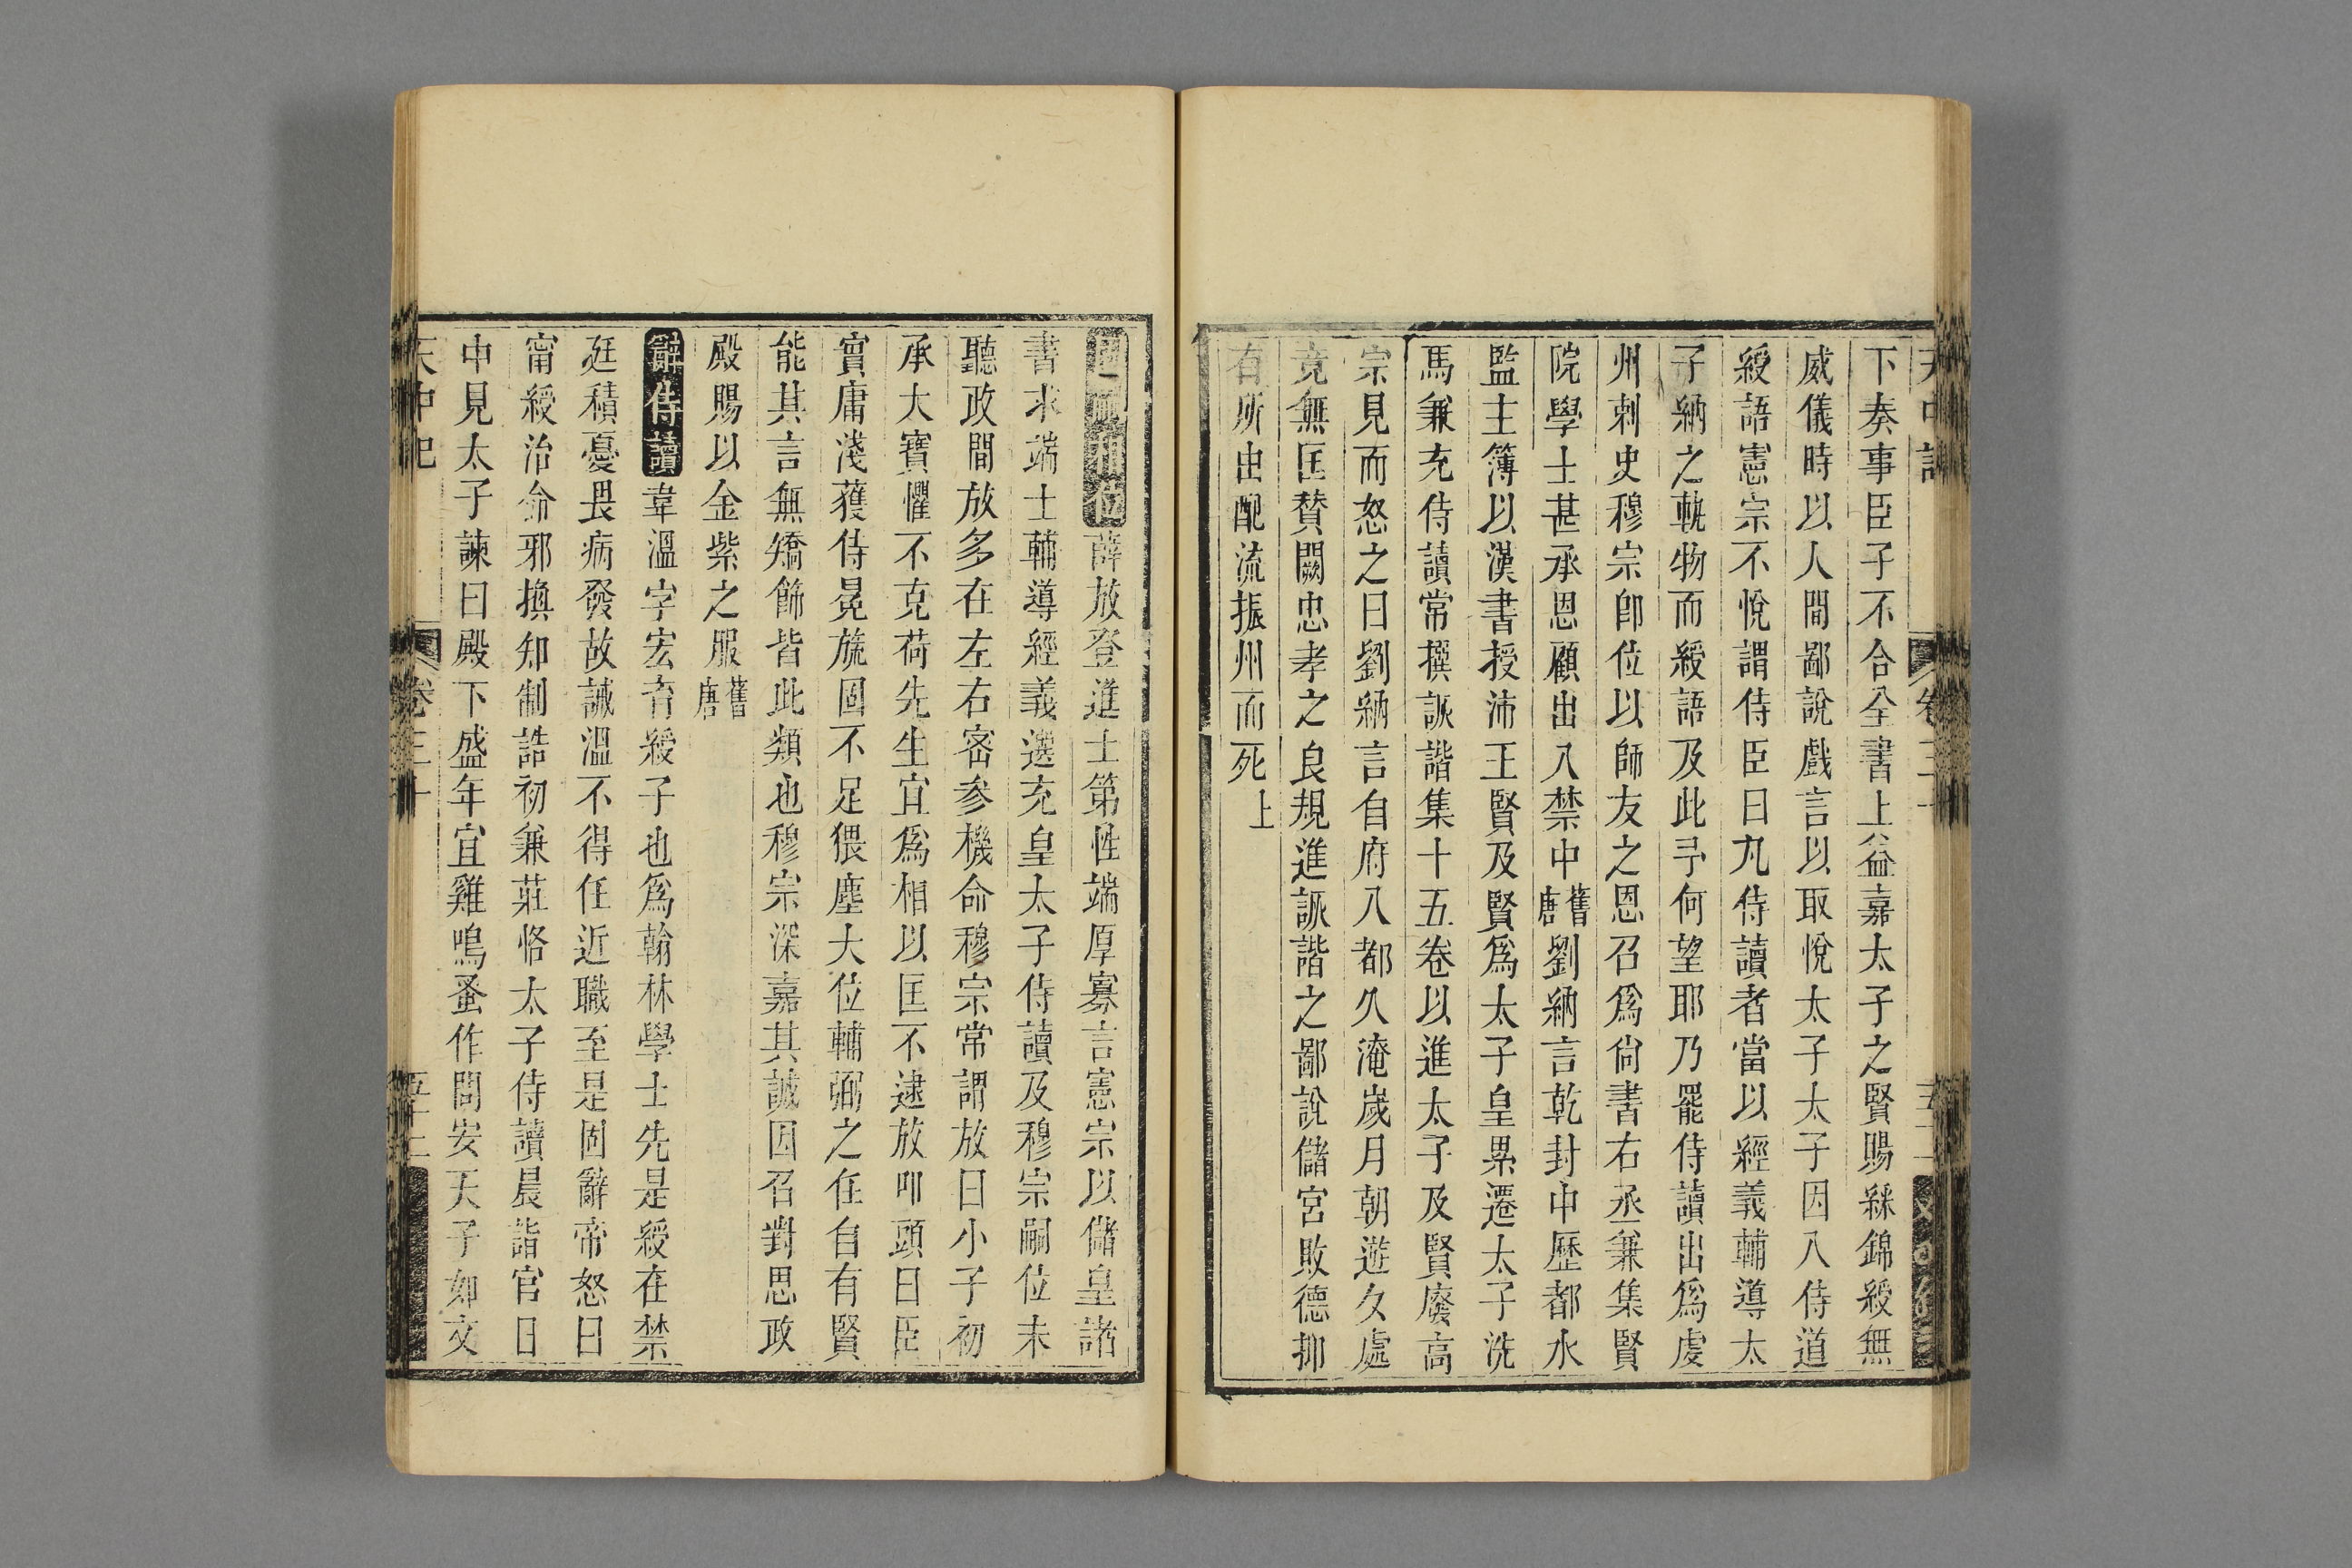 下奏事臣子不合全書上益嘉太子之賢賜綵錦綬無
威儀時以人間鄙說戲言以取悅太子太子因入侍道
綬語憲宗不悅謂侍臣曰凡侍讀者當以經義輔導太
子納之軌物而綬語及此予何望耶乃罷侍讀出爲虔
州刺史穆宗卽位以師友之恩召爲尙書右丞兼集賢
院學士甚承恩顧出入禁中舊唐劉納言乾封中歷都水
監主簿以漢書授沛王賢及賢爲太子皇累遷太子洗
馬兼充侍讀常撰詼諧集十五卷以進太子及賢廢高
宗見而怒之曰劉納言自府入都久淹歲月朝遊夕處
竟無匡賛闕忠孝之良規進詼諧之鄙說儲宮敗德抑
有所由配流振州而死上
薛放登進士第性端厚寡言憲宗以儲皇諸
書求端士輔導經義選充皇太子侍讀及穆宗嗣位未
聽政間放多在左右密參機命穆宗常謂放曰小子初
承大寶懼不克荷先生宜爲相以匡不逮放叩頭曰臣
實庸淺獲侍冕旒固不足猥塵大位輔弼之任自有賢
能其言無矯飾皆此類也穆宗深嘉其誠因召對思政
殿賜以金紫之服舊唐
辭侍讀韋溫字宏育綬子也爲翰林學士先是綬在禁
廷積憂畏病發故誡溫不得任近職至是固辭帝怒曰
甯綬治命邪換知制誥初兼莊恪太子侍讀晨詣官日
中見太子諫曰殿下盛年宜雞鳴蚤作問安天子如文
天中記 卷三十